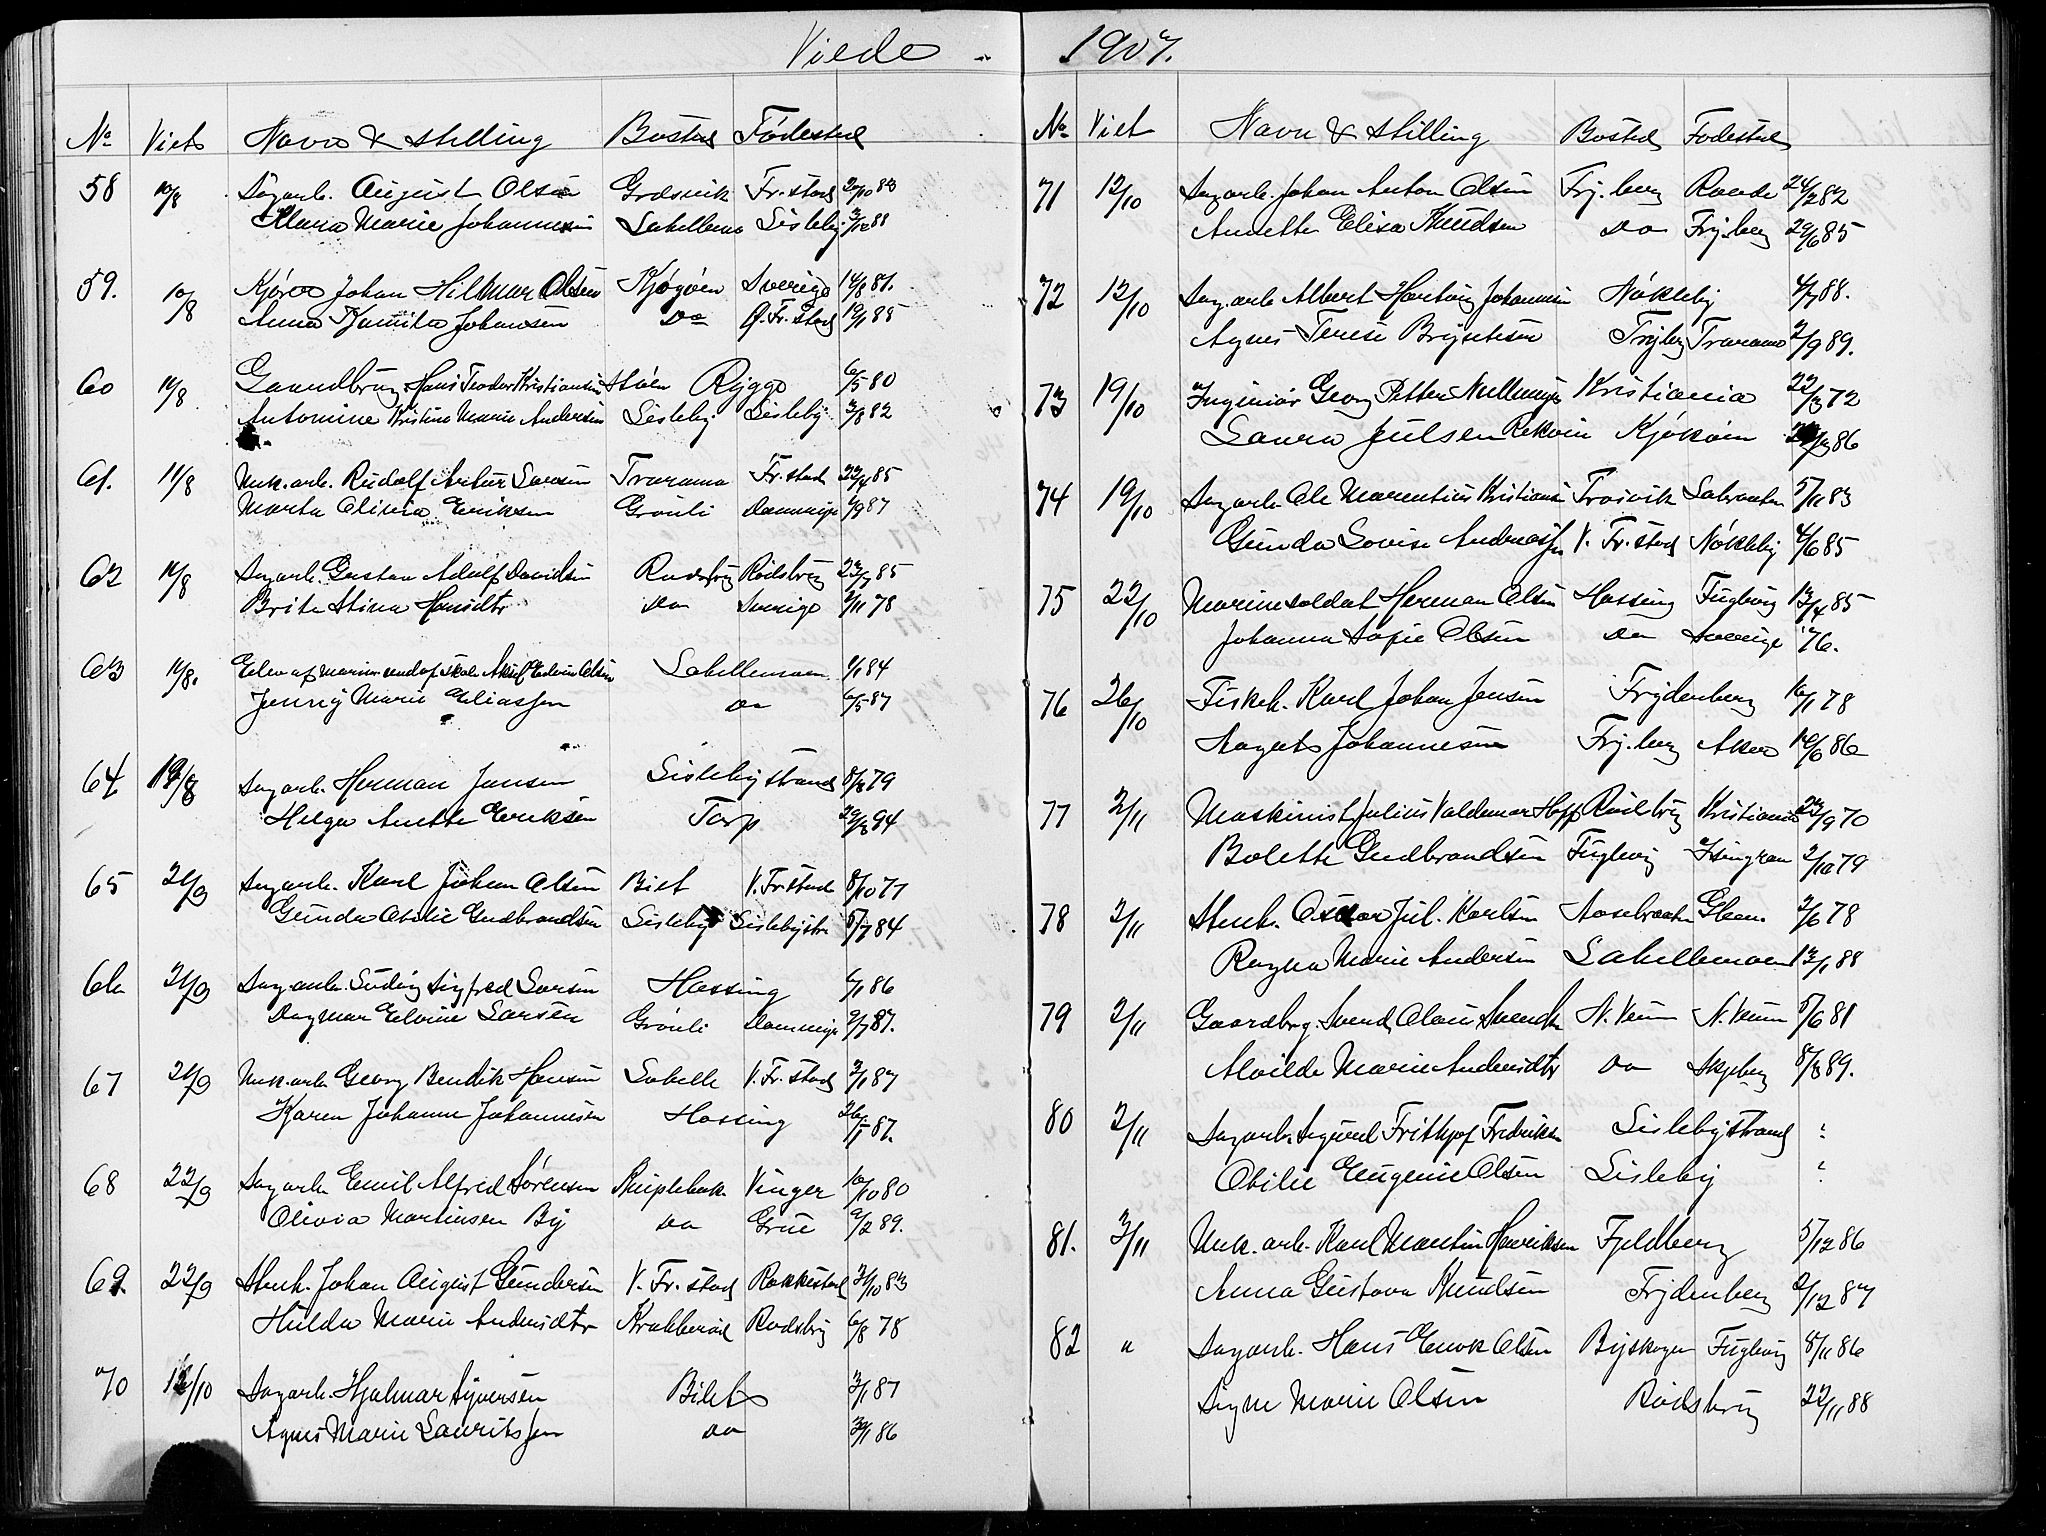 Viede 1907.
No Viets Navn & stilling Bosted Fødested
58 10/8 Sagarb. August Olsen Gresvik Fr.stad 20/10 83
Klara Marie Johannesen Labellmoe Lisleby 3/12 88
59. 10/8 Kjører Johan Hilmar Olsen Kjøgøen Sverige 14/8 81.
Anna Kamilla Johansen Do G. Fr. stad 12/1 88
60 11/8 Gaardbrug. Hans Teodor Kristiansen Rygge 6/5 80
Antomine Kristine Marie Andersen Lisleby Lisleby 3/8 82
61. 11/8 Murarb. Rudolf Artur Larsen Traramo Fr.stad 22/4 85
Marta Olivia Eriksen Grønli Dammyr 4/9 87
62 11/8 Sagarb. Gustav Adolf Davidsen Rødsbrug Rødsbrug 23/7 85
Brita Stina Hansdtr Do Sverige 2/11 78
63 11/8. Elev af marin. underof. skole Aksel Edvin Olsen Labellemoen 1/1 84
Jenny Marie Eliassen Do 6/5 87
64 18/8 Sagarb. Herman Jansen Lislebystrand 8/8 79
Helga Anette Eriksen Torp 29/8 84
65 21/9 Sagarb. Karl Johan Olsen Bilet V. Fr.stad 8/10 77
Gunda Otilie Gudbrandsen Lisleby Lislebystr. 5/7 84
66 21/9 Sagarb. Ludvig Sigfred Larsen Hassing 6/1 86
Dagmar Elvine Larsen Grønli Dammyr 9/7 87.
67 21/9 Murarb. Georg Bendik Hansen Labelle V. Fr. stad 2/1 87
Karen Johanne Johannesen Hassing 26/1 87.
68 22/9 Sagarb. Emil Alfred Sørensen Kiplebak Vinger 16/10 80
Olivia Martinsen By Do Grue 9/2 89.
69. 22/9 Stenh. Johan August Gundersen V. Fr. stad Rakkestad 31/10 83
Hulda Marie Andersdtr Krabberød Rødsbrg 6/8 78
70 12/10 Sagarb. Hjalmar Syversen Bilet 3/1 87
Agnes Marie Lauritssen Do 30/1 86
No Viet Navn & stilling Bosted Fødested
71 12/10 Sagarb. Johan Anton Olsen Fry.berg Raade 24/2 82
Annette Elisa Knudsen Do Fry.berg 29/6 85
72 12/10 Sag.arb. Albert Hartvig Johannesen Nøkleby 4/7 88.
Agnes Terese Bryntesen Fryberg Traramo 2/9 89.
73 19/10 Ingeniør Georg Petter Kristiania 22/3 72
Laura Julsen Rekvin Kjøkøen 86
74 19/10 Sagarb. Ole Marentius Kristiansen Trosvik Labraaten 5/11 83
Gunda Lovise Andreassen V. Fr. stad Nøkleby 4/6 85
75 22/10 Marinesoldat Herman Olsen Hassing Fuglevig 13/4 85
Johanna Sofie Olsen Do Sverige 76.
76 26/10 Fiskeh. Karl Johan Jensen Frydenberg 16/1 78
Johannesen Fry.berg Aker 14/6 86
77 2/11 Maskinist Julius Valdemar Hoff Rødsbrug Kristiania 23/9 70
Bolette Gudbrandsen Fuglevig Isingran 2/10 79
78 2/11 Stenh. Oskar Jul. Karlsen Aasebraaten Glem. 2/6 78
Ragna Marie Andersen Labellemoen 13/1 88
79 2/11 Gaardbrg. Svend Olaus Svendsen N. Veum N. Veum 5/6 81
Alvilde Marie Andersdtr Do Skjeberg 8/8 89.
80 2/11 Sagarb. Sigurd Frithjof Fredriksen Lislebystrand ?
Otilie Eugenie Olsen Lisleby ?
81. 3/11 Murarb. Karl Martin Henriksen Fjeldberg 5/12 86
Anna Gustava Knudsen Frydenberg 2/12 87
82 " Sagarb. Hans Enok Olsen Byskogen Fuglevig 8/11 86
Signe Marie Olsen Rødsbrug 22/11 88